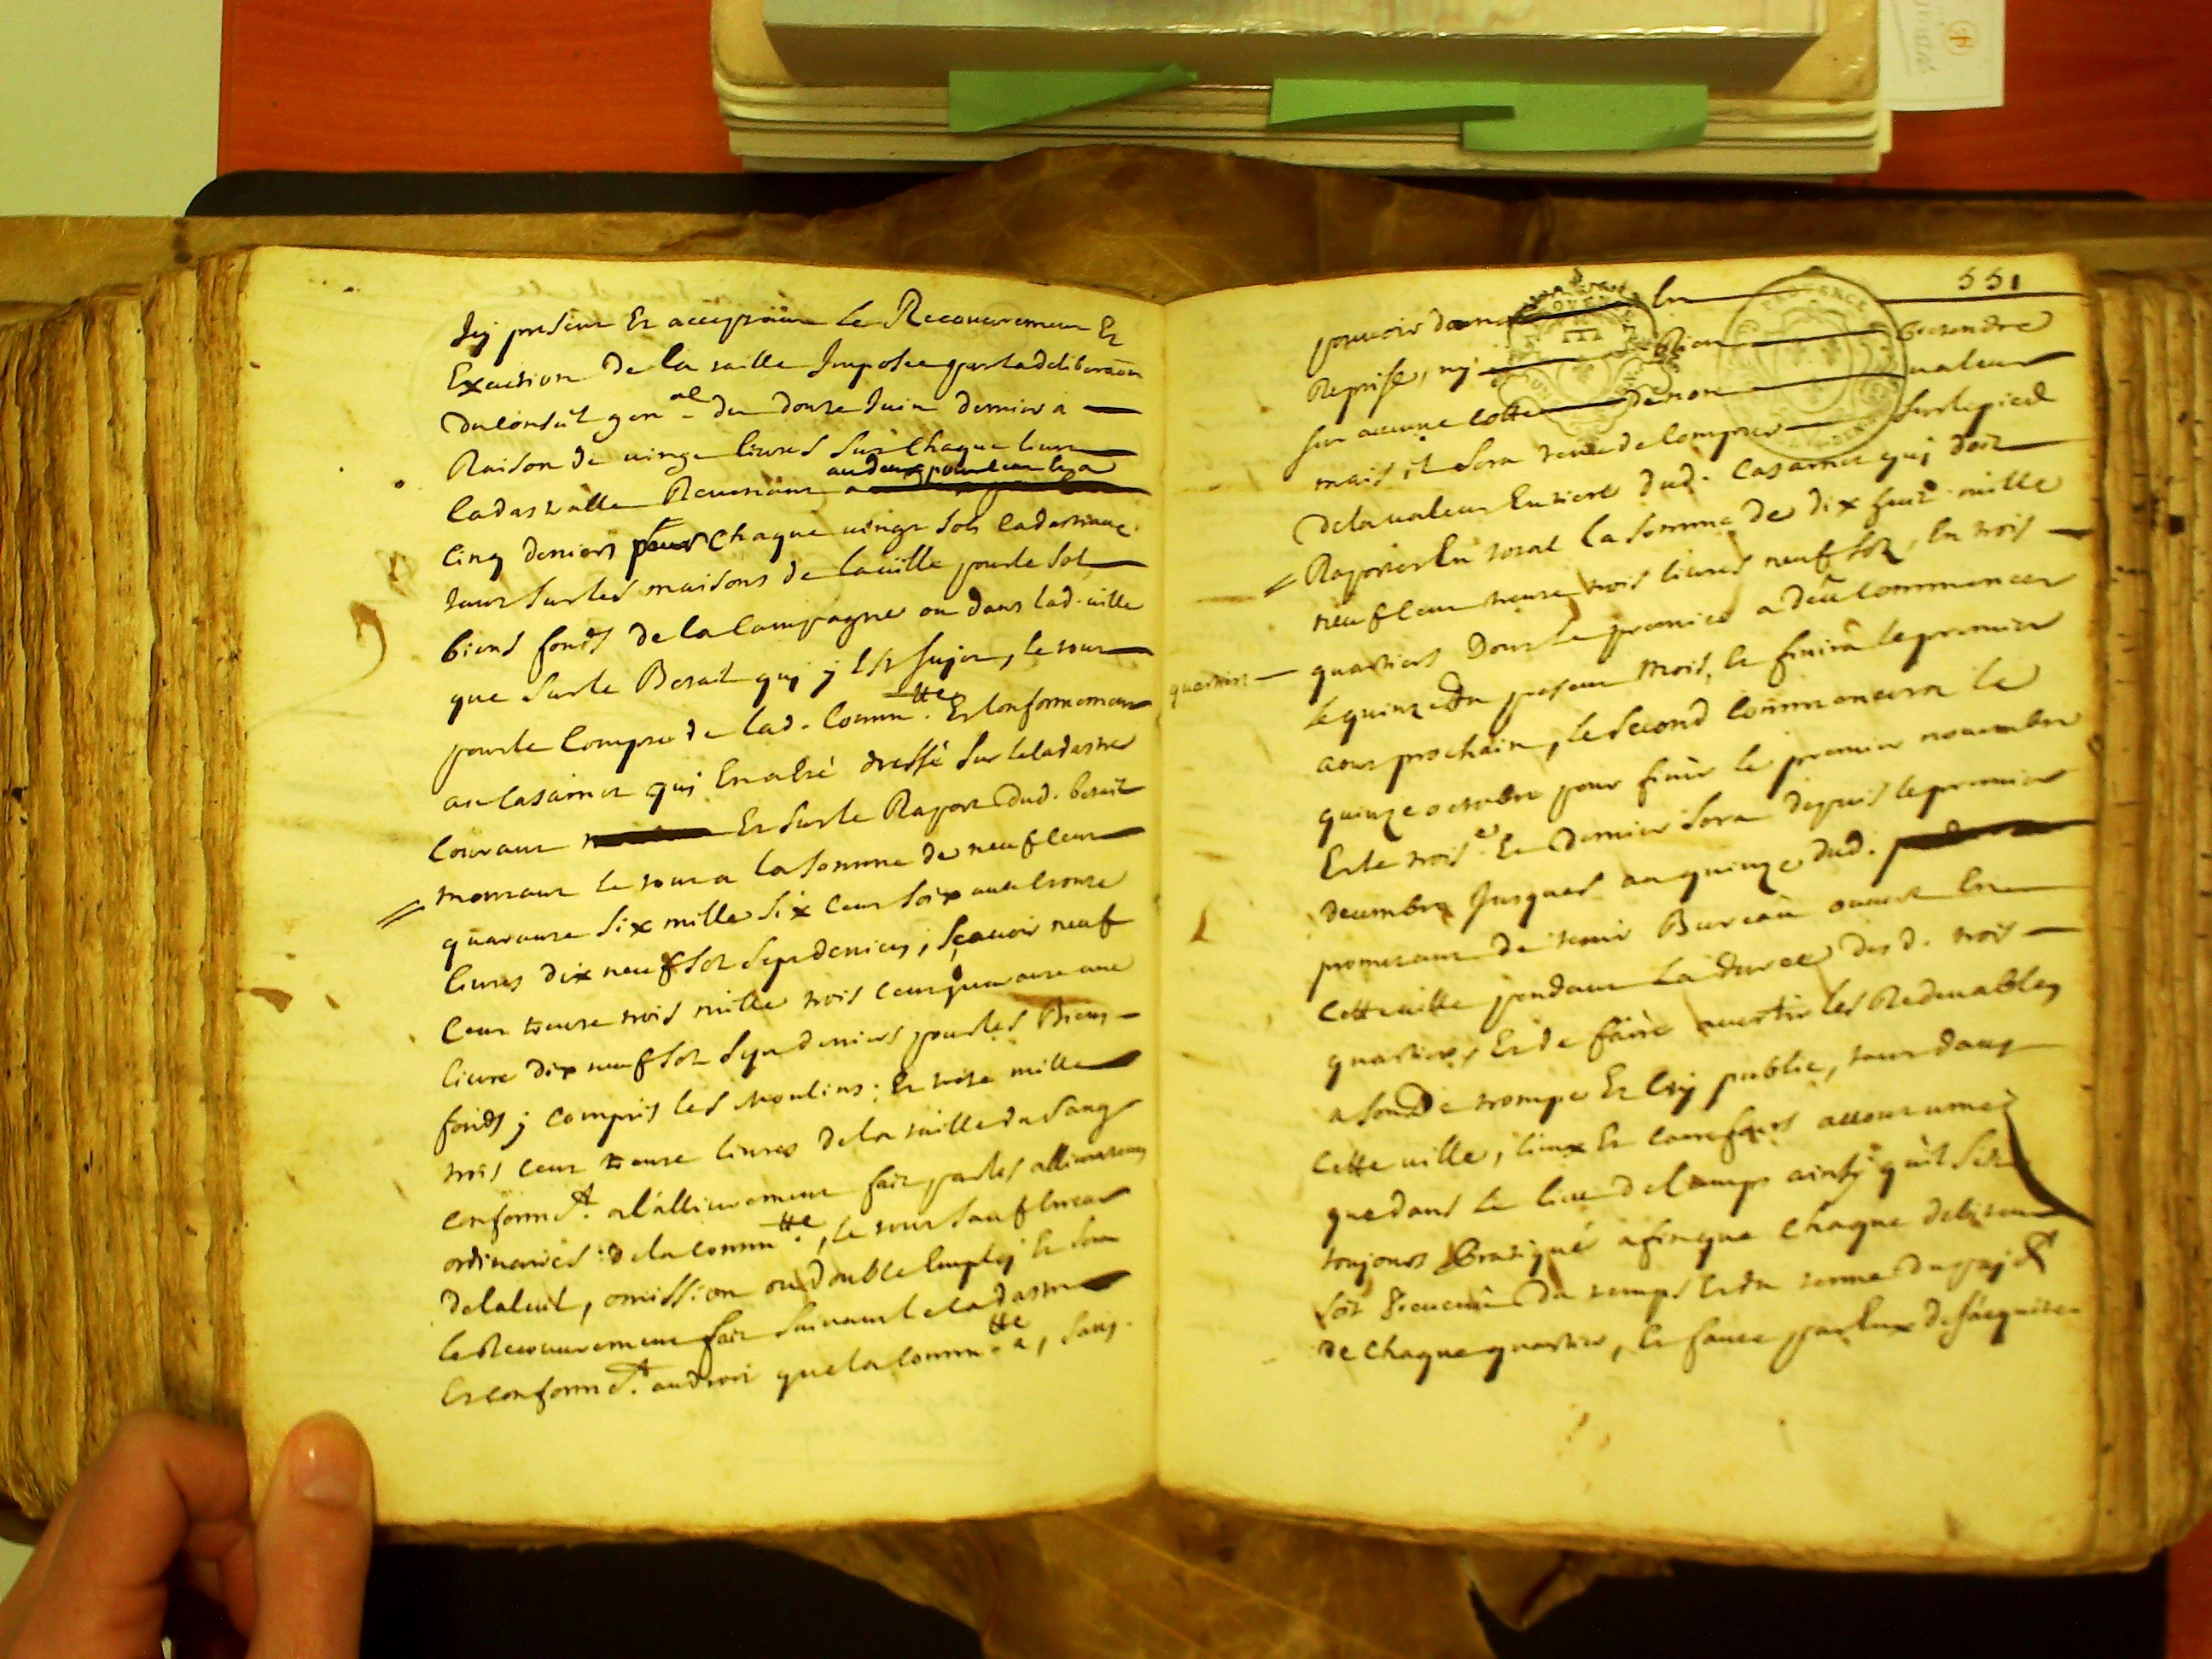 Icy present Et acceptant le Recouvrement Et
Exaction De la taille Imposée par la deliberaon
Du Conseil gen.al du douze Juin dernier a
Raison de vingt livres sur chaque livre
cadastralle Revenant
cinq deniers pour chaque vingt sols cadastraux
tant sur les maisons de la ville pour le sol
biens fonds de la Campagne ou dans lad. ville
que sur le Betail quj y Est sujet, le tout
pour le Compte de lad. Commtte. Et conformement
au Casarnet qui En a Esté dressé sur le Cadastre
Courant Et sur le Raport dud. betail
montant le tout a la somme de neuf cent
quarante six mille six cent soixante treize
livres dix neuf sols sept deniers, sçavoir neuf
cent trente trois mille trois cent quarante une
livre dix neuf sols sept deniers pour les Biens
fonds y compris les Moulins; Et treize mille
trois cent trente livres de la taille du sang
conformet. a l'allivrement fait par les allivrateurs
ordinaires de la Commtte., le tout sauf Erreur
de calcul, omission ou double Employ Et sera
le Recouvrement fait suivant le cadastre
Et conformet. au droit que la Commtte. a, sans
551
pouvoir En
Reprise, nj Bien
sur aucune cotte de non valeur
mais il sera tenu de compter sur le pied
de la valeur Entiere dud. Casarnet quj doit
Raporter En total la somme de dix huit mille
neuf cent trente trois livres neuf sols, En trois
quartiers dont le premier a deu commencer
quartiers
le quinze du present mois, Et finira le premier
aout prochain, le second commencera le
quinze octobre pour finir le premier novembre
Et le trois.e Et dernier sera depuis le premier
decembre Jusques au quinze dud.
promettant de tenir Bureau ouvert En
cette ville pendant La durée desd. trois
quartiers, Et de faire avertir les Redevables
a son de trompe Et Cry public, tant dans
cette ville, lieux Et carrefours accoutumez
que dans le lieu de Camps ainsy qu'il s'est
toujours Pratiqué afin que chaque debiteur
soit du temps Et du terme du payet
de chaque quartier, Et faute par Eux de s'acquiter